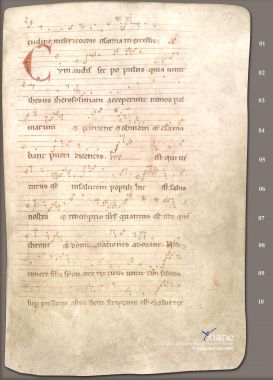 tudine misericordie osanna in excelsis.
Cum audisset populus quia uenit
ihesus iherosolimam acceperunt ramos pal
marum & exierunt ei obuiam & clama
bant pueri dicentes. hic est qui uen
turus est in salutem populi hic est salus
nostra & redemptio isrl quantus est iste
throni & dominationes Noli
timere filia sion ecce rex tuus uenit tibi sedens
sup pullum asine sicut scriptum est salue rex
01
02
03
04
05
06
07
08
09
10
Xiane